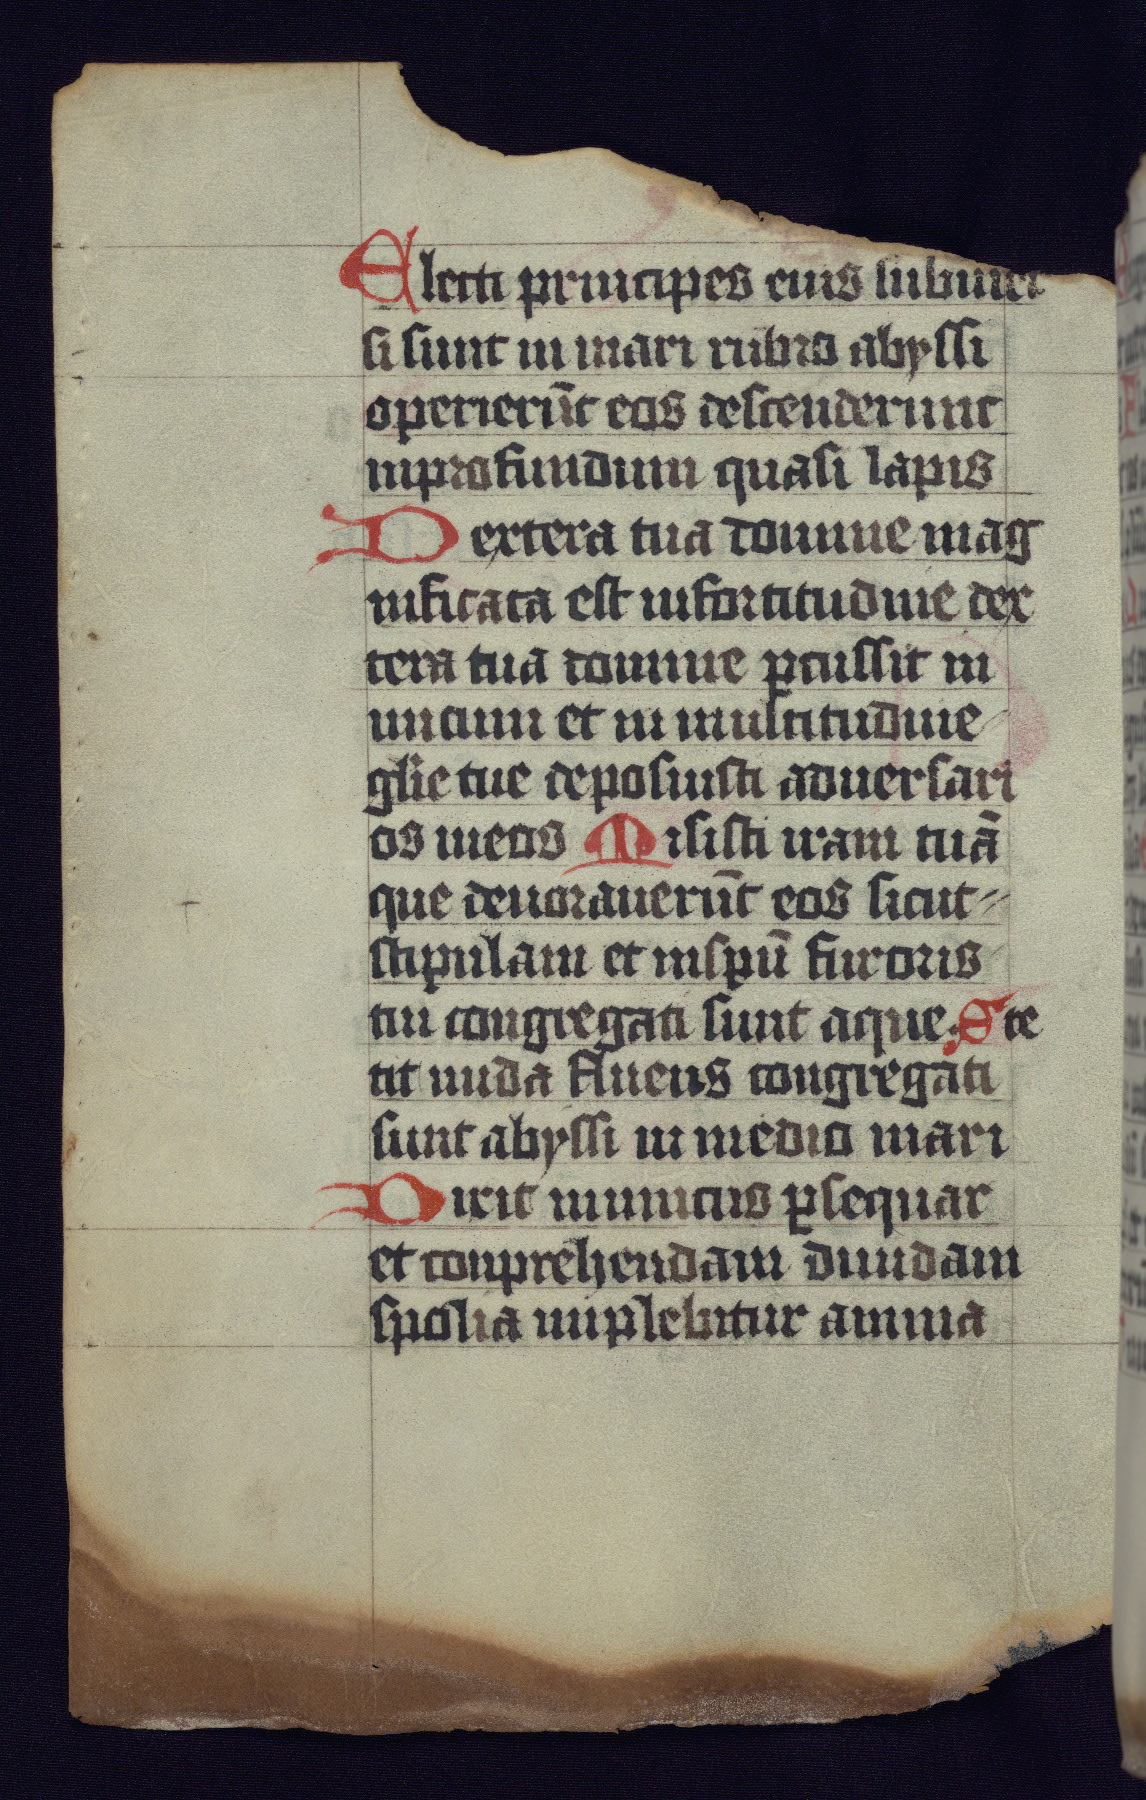 Electi principes eius submer
si sunt in mari rubro abyssi
operierūt eos descenderunt
inprofundum quasi lapis
Dextera tua domine mag
nificata est infortitudine dex
tera tua domine ꝑcussit in
imicum et in multitudine
glīe tue deposuisti aduersari
os meos Misisti iram tuā
que deuorauerūt eos sicut
stipulam et inspū furoris
tui congregati sunt aque. Ste
tit unda fluens congregati
sunt abyssi in medio mari
Dixit inimicus ꝑsequar
et conprehendam diuidam
spolia inplebitur anima